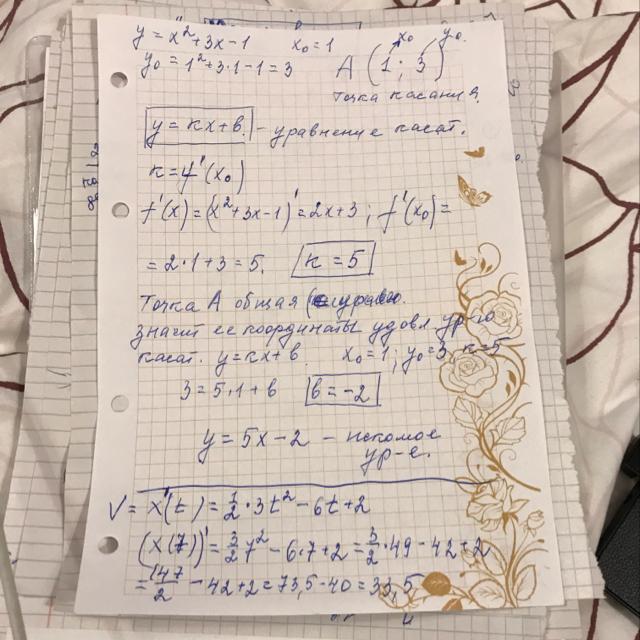 y = x²+3x-1 x₀=1 x₀ y₀
y₀ = 1²+3·1-1=3 A (1; 3)
точка касания.
y = kx+b - уравнение касат.
k = f'(x₀)
f'(x) = (x²+3x-1)' = 2x+3; f'(x₀)=
= 2·1+3=5. k=5
Точка А общая
значит ее координаты удовл ур-ю
касат. y=kx+b x₀=1; y₀=3, k=5
3=5·1+b b=-2
y = 5x-2 - искомое
ур-е.
V = x'(t) = 1/2·3t²-6t+2
(x(7))' = 3/2 7²-6·7+2 = 3/2·49-42+2
= 147/2 -42+2=73,5-40=33,5